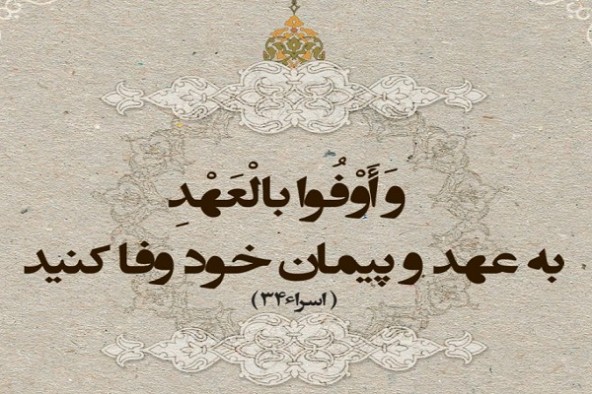 وَ أَوْفُوا بالْعَهْدِ
به عهد و پیمان خود وفا کنید
(اسراء۳۴)